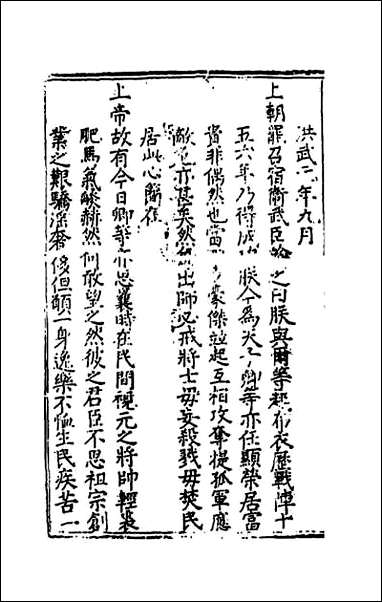 洪武二年九月
上朝罷召宿衛武臣諭之曰朕與爾等起布衣歷戰陣十
五六年乃得成功朕今為天子爾等亦任顯榮居富
貴非偶然也當 豪傑並起互相攻奪提孤軍應
敵危亦甚矣然每出師必戒將士毋妄殺戮毋焚民
居此心簡在
上帝故有今日卿等亦思曩時在民間視元之將帥輕裘
肥馬氣燄赫然何敢望之然彼之君臣不思祖宗創
業之艱驕淫奢侈但顧一身逸樂不恤生民疾苦一